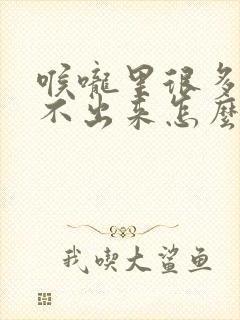 喉嚨里很多
不出来怎麽
我喫大鲨鱼